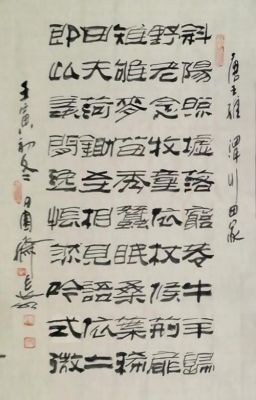 唐王維 渭川田家
斜陽照墟落窮巷牛羊歸
野老念牧童依杖候荊扉
雉雊麥苗秀蠶眠桑葉稀
田夫荷鋤至相見語依二
即此羨閒逸悵然吟式微
壬寅初冬